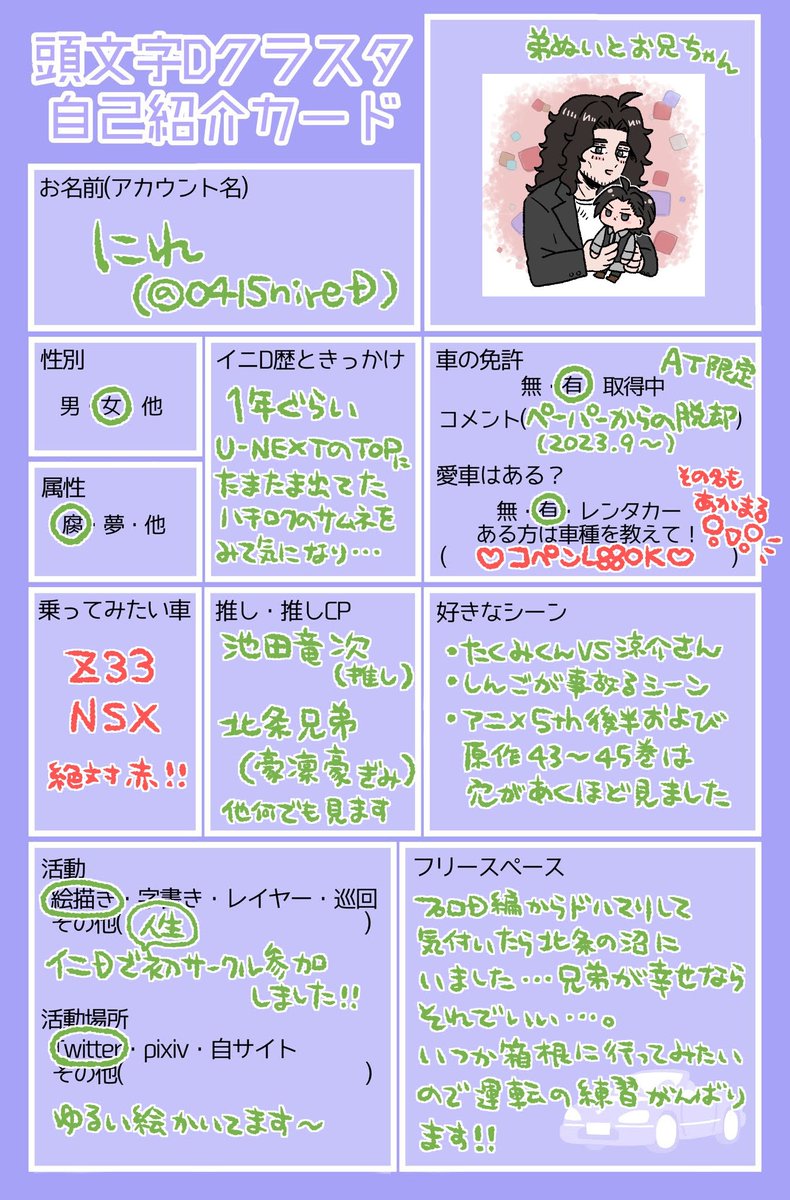 頭文字Dクラスタ
自己紹介カード
弟ぬいとお兄ちゃん
お名前(アカウント名)
にれ
(@0415nireD)
性別
男・女・他
属性
腐・夢・他
イニD歴ときっかけ
1年ぐらい
U-NEXTのTOPに
たまたま出てた
ハチロクのサムネを
みて気になり…
車の免許
無・有・取得中
AT限定
コメント(ペーパーからの脱却)
(2023.9〜)
愛車はある？
無・有・レンタカー
ある方は車種を教えて！
(♡コペンL880K♡)
その名も
あかまる
乗ってみたい車
Z33
NSX
絶対赤!!
推し・推しCP
池田竜次
(推し)
北条兄弟
(豪凜豪ぎみ)
他何でも見ます
好きなシーン
・たくみくんVS涼介さん
・しんごが事故るシーン
・アニメ5th後半および
原作43〜45巻は
穴があくほど見ました
活動
絵描き・字書き・レイヤー・巡回
その他(人生)
イニDで初サークル参加
しました!!
活動場所
Twitter・pixiv・自サイト
その他( )
ゆるい絵かいてます〜
フリースペース
プロD編からドハマりして
気付いたら北条の沼に
いました…兄弟が幸せなら
それでいい…。
いつか箱根に行ってみたい
ので運転の練習がんばり
ます!!